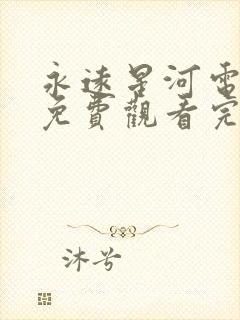 永遠星河電
免費觀看完
沐兮